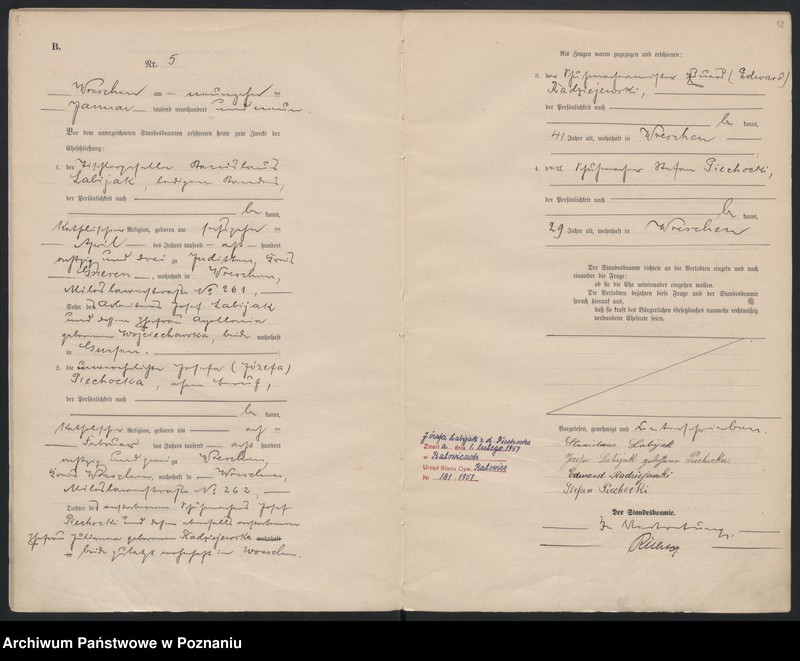 9.
B.
Nr. 5
Wreschen am neunzehn ten
Januar tausend neunhundert und neun.
Vor dem unterzeichneten Standesbeamten erschienen heute zum Zwecke der
Eheschließung:
1. der Tischlergeselle Stanislaus
Labijak, ledigen Standes,
der Persönlichkeit nach
be kannt,
Katholischer Religion, geboren am ten
April des Jahres tausend acht hundert
achtzig und drei zu , Kreis
Gnesen, wohnhaft in Wreschen,
Miloslawerstraße No 261,
Sohn des Arbeiters Josef Labijak
und dessen Ehefrau Apollonia
geborenen Wojciechowska, beide wohnhaft
in Gnesen.
2. die unverehelichte Josefa (Józefa)
Piechocka, ohne Beruf,
der Persönlichkeit nach
be kannt,
Katholischer Religion, geboren am ten
Februar des Jahres tausend acht hundert
achtzig und zwei zu Wreschen,
Kreis Wreschen, wohnhaft in Wreschen,
Miloslawerstraße No 262,
Tochter des verstorbenen Schuhmachers Josef
Piechocki und dessen ebenfalls verstorbenen
Ehefrau Julianna geborenen Radziejewska wohnhaft
in beide zuletzt wohnhaft in Wreschen.
10
Als Zeugen waren zugezogen und erschienen:
3. der Schuhmachermeister Eduard (Edward)
Radziejewski,
der Persönlichkeit nach
be kannt,
41 Jahre alt, wohnhaft in Wreschen
4. der Schuhmacher Stefan Piechocki,
der Persönlichkeit nach
be kannt,
29 Jahre alt, wohnhaft in Wreschen
Der Standesbeamte richtete an die Verlobten einzeln und nach
einander die Frage:
ob sie die Ehe miteinander eingehen wollen.
Die Verlobten bejahten diese Frage und der Standesbeamte
sprach hierauf aus,
daß sie kraft des Bürgerlichen Gesetzbuches nunmehr rechtmäßig
verbundene Eheleute seien.
Vorgelesen, genehmigt und unterschrieben.
Stanislaus Labijak
Josefa Labijak geborene Piechocka.
Edward Radziejewski
Stefan Piechocki
Der Standesbeamte.
In Vertretung.
Józefa Łabijak z d. Piechocka
Zmarła dnia 1. lutego 1951
w Katowicach
Urząd Stanu Cyw. Katowice
Nr 181/1951
Archiwum Państwowe w Poznaniu